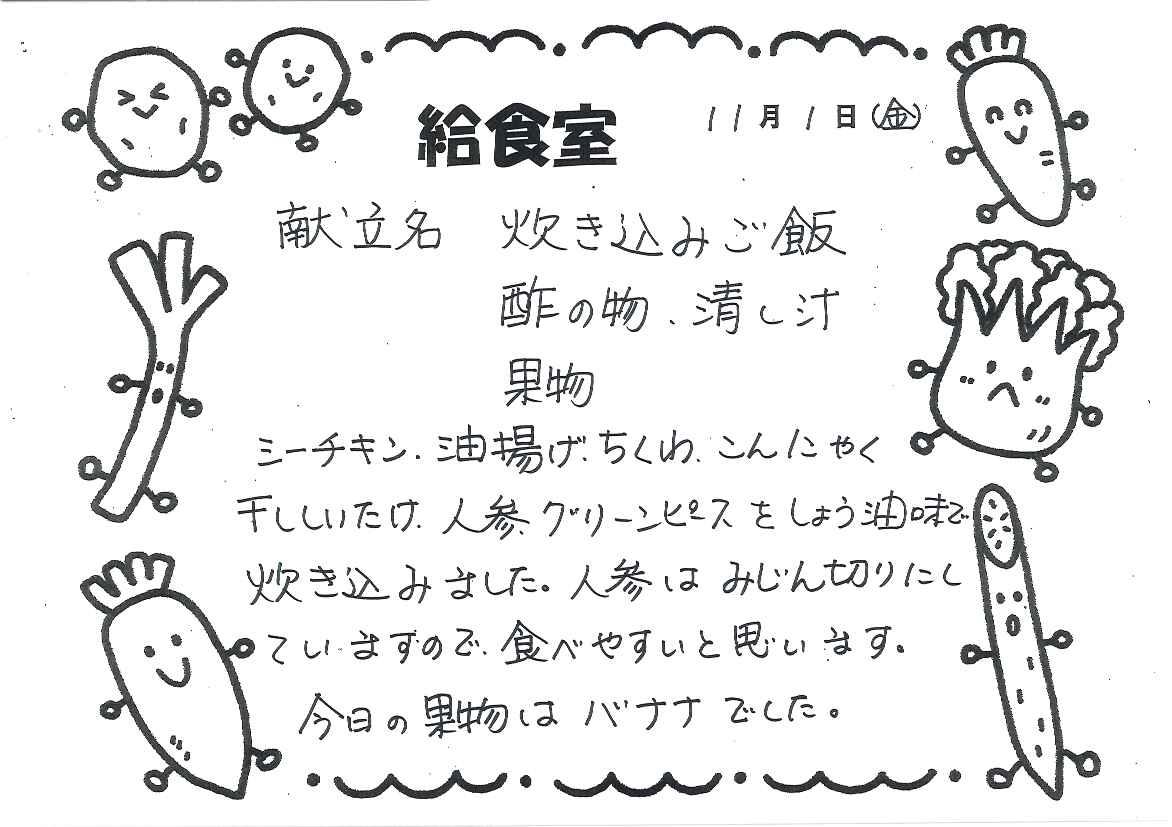 給食室 11月1日(金)
献立名 炊き込みご飯
酢の物、清し汁
果物
シーチキン、油揚げ、ちくわ、こんにゃく
干ししいたけ、人参、グリーンピースをしょう油味で
炊き込みました。人参はみじん切りにし
ていますので、食べやすいと思います。
今日の果物はバナナでした。